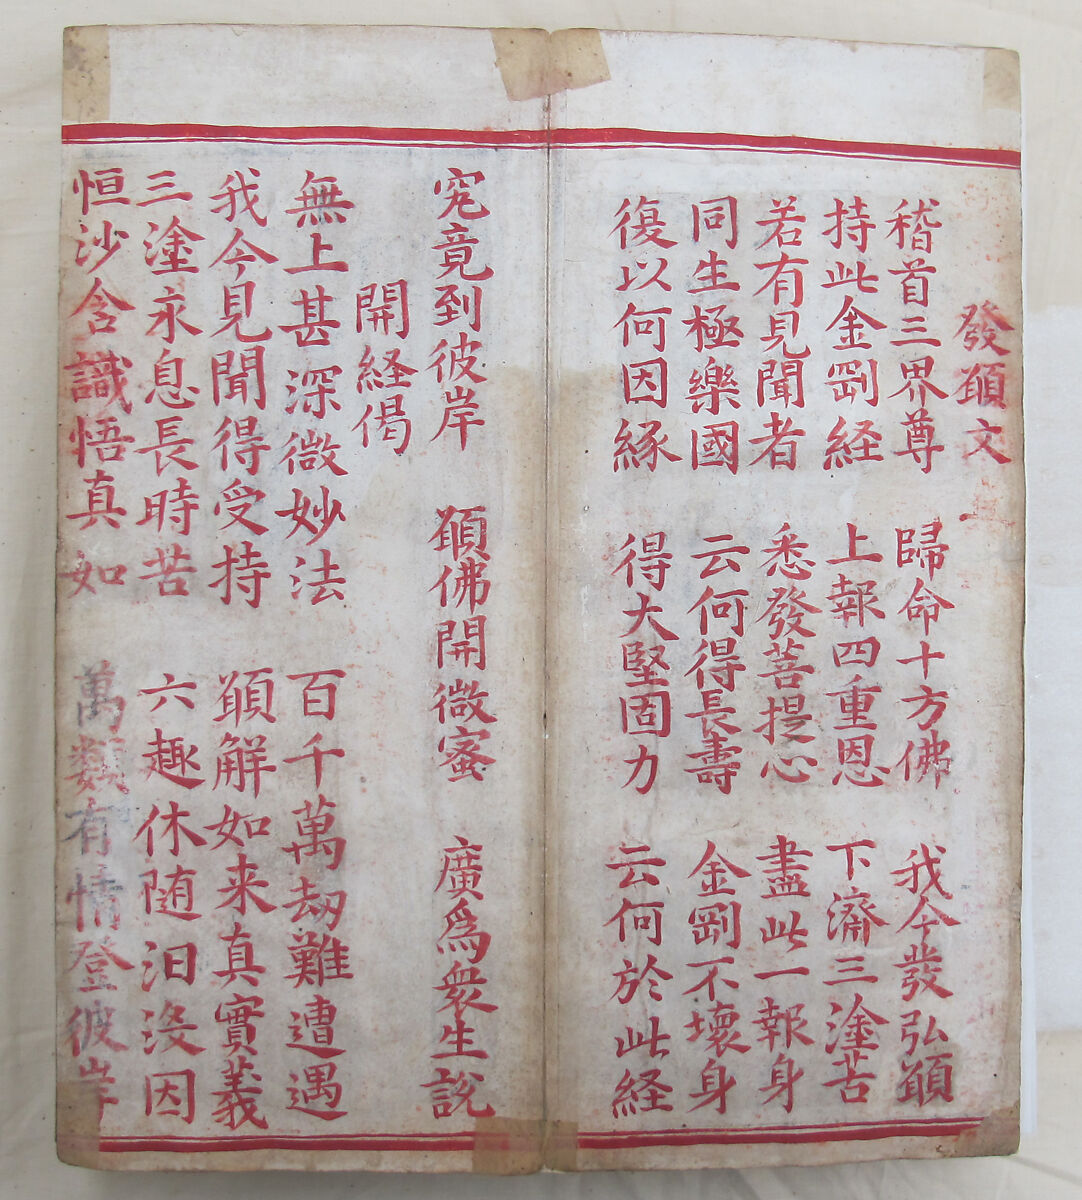 發願文
稽首三界尊 歸命十方佛 我今發弘願
持此金剛経 上報四重恩 下濟三塗苦
若有見聞者 悉發菩提心 盡此一報身
同生極樂國 云何得長壽 金剛不壞身
復以何因緣 得大堅固力 云何於此経
究竟到彼岸 願佛開微宻 廣爲衆生說
開経偈
無上甚深微妙法 百千萬劫難遭遇
我今見聞得受持 願解如来真實義
三塗永息長時苦 六趣休随汩没因
恒沙含識悟真如 萬類有情登彼岸